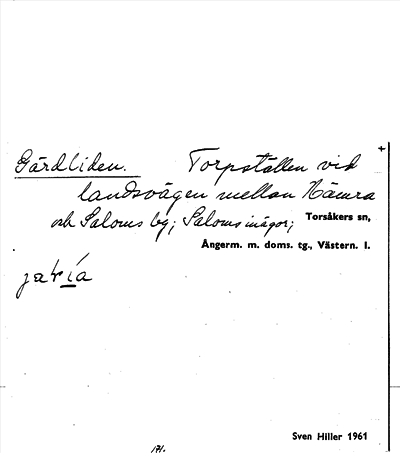 Gårdliden. Torpställen vid
landsvägen mellan Hämra
och Saloms by; Saloms inägor; Torsåkers sn,
Ångerm. m. doms. tg., Västern. l.
Sven Hiller 1961
171.